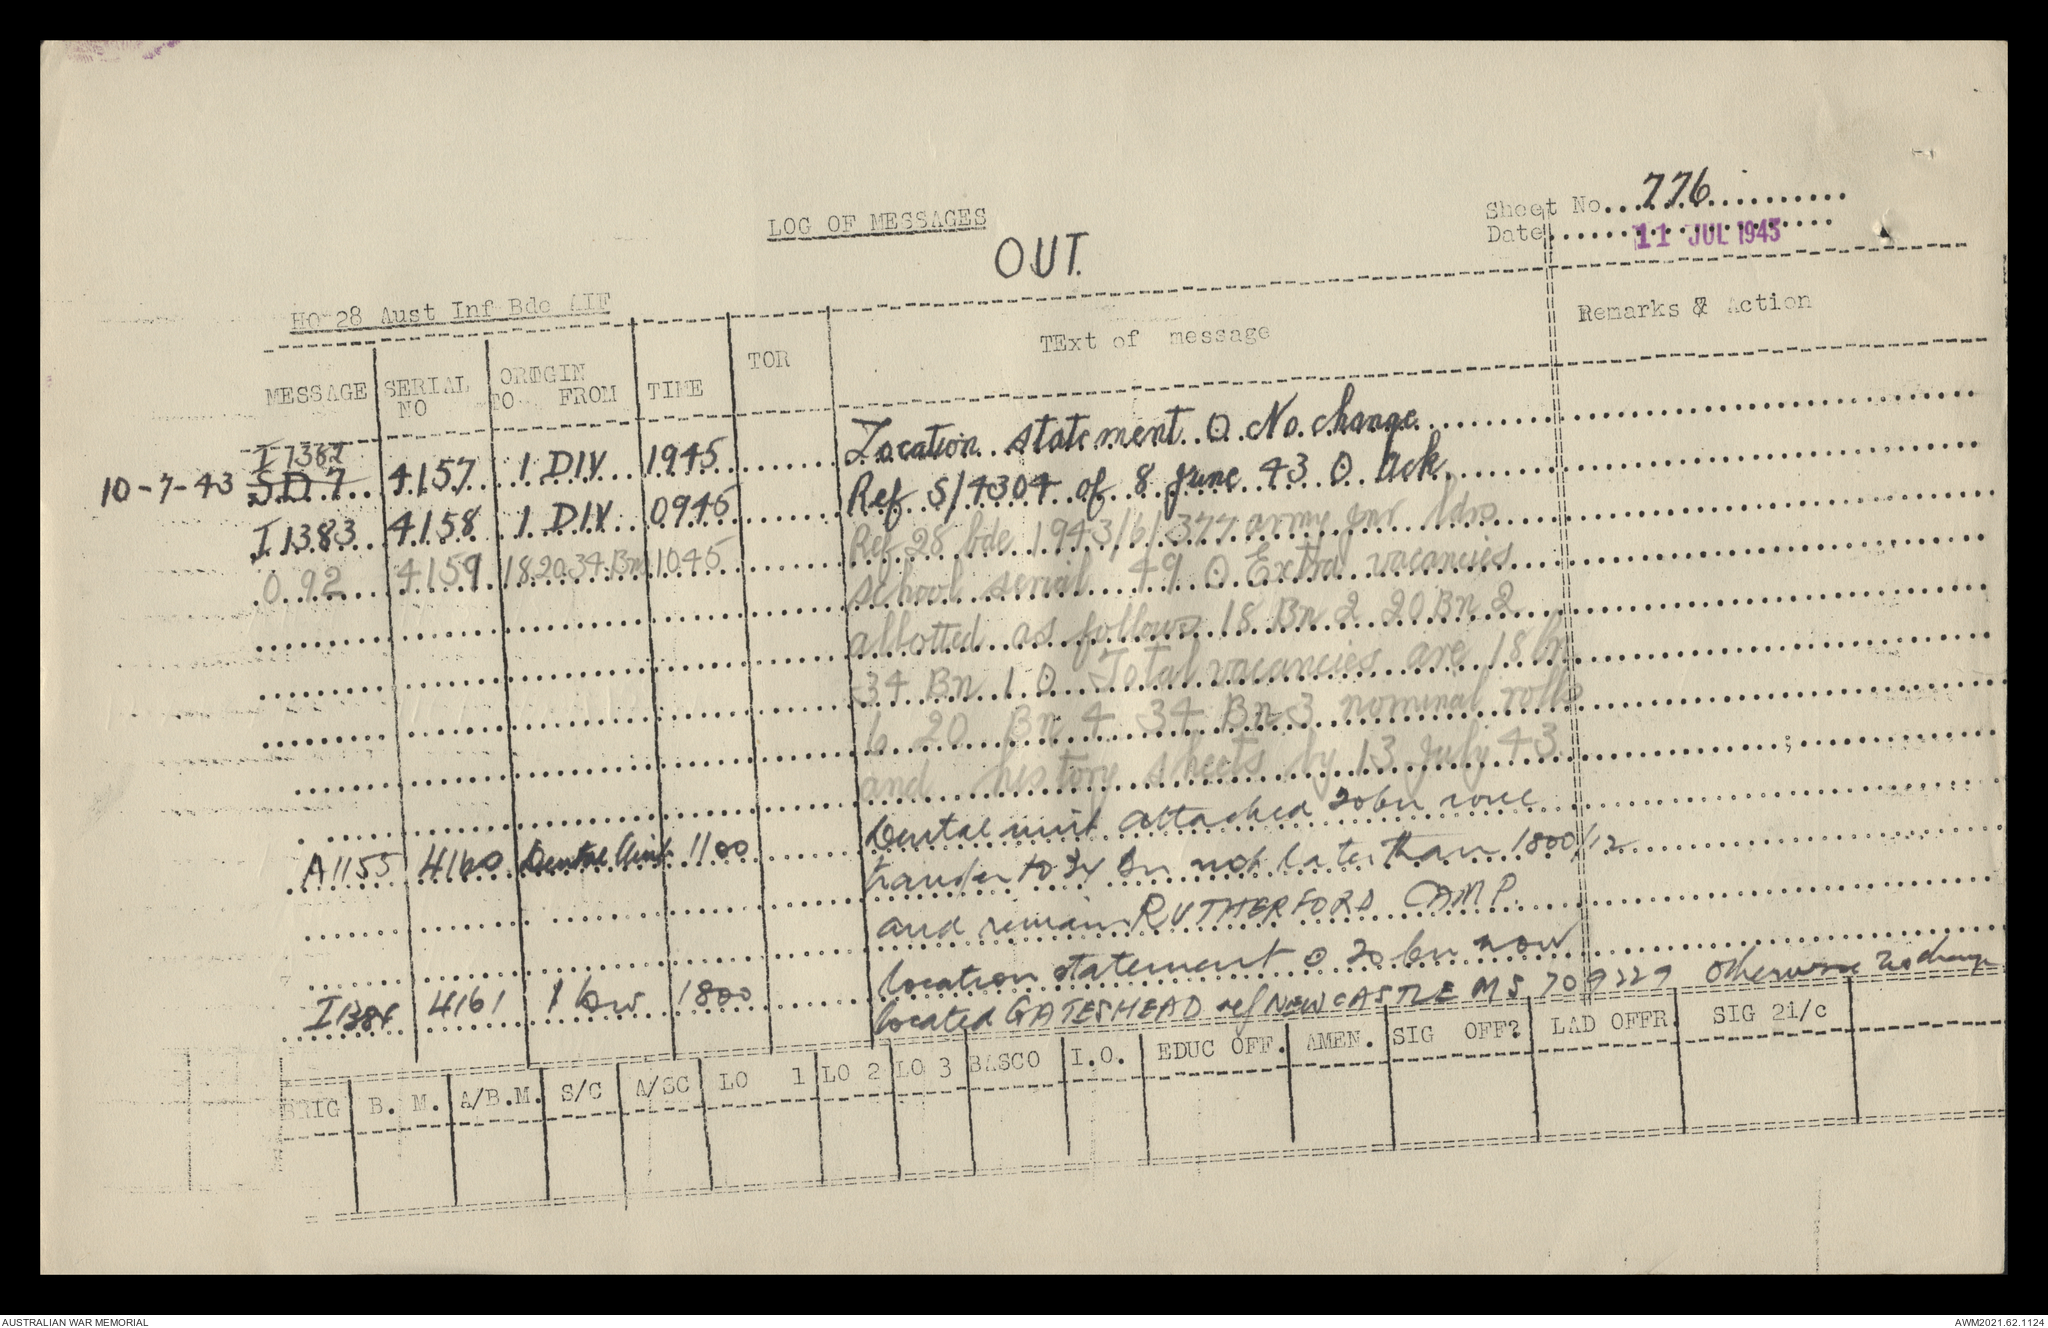 LOG OF MESSAGES
OUT.
Sheet No...776
Date 11 JUL 1943
HQ 28 Aust Inf Bde AIF
MESSAGE SERIAL NO ORIGIN TO FROM TIME TOR TExt of message Remarks & Action
I 1382
10-7-43 SD 7 4157 1 DIV 1945 Location statement O No change
I 1383 4158 1 DIV 0945 Ref S/4304 of 8 June 43 O Ack
O 92 4159 18 20 34 Bn 1045 Ref 28 bde 1943/6/377 army jnr ldrs
school serial 49 O Extra vacancies
allotted as follows 18 Bn 2 20 Bn 2
34 Bn 1 O Total vacancies are 18 bn
6 20 Bn 4 34 Bn 3 nominal rolls
and history sheets by 13 July 43
A1155 4160 Dental Unit 1100 Dental unit attached 20 bn will
transfer to 34 Bn not later than 1800/12
and remain RUTHERFORD CAMP.
location statement O 20 bn now
I1384 4161 1 1800 located GATESHEAD ref NEWCASTLE MS 709229 otherwise no change
BRIG B. M. A/B.M. S/C A/SC LO 1 LO 2 LO 3 BASCO I.O. EDUC OFF. AMEN. SIG OFF? LAD OFFR. SIG 2i/c
AUSTRALIAN WAR MEMORIAL AWM2021.62.1124